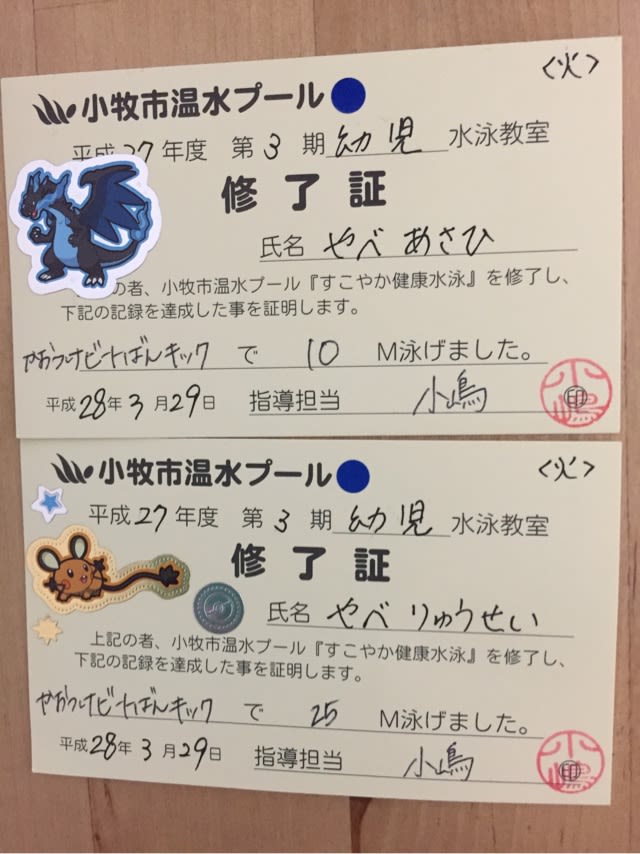 <火>
小牧市温水プール
平成27年度 第3期幼児水泳教室
修了証
氏名 やべ あさひ
の者、小牧市温水プール『すこやか健康水泳』を修了し、
下記の記録を達成した事を証明します。
かおつけビートばんキック で 10 M泳げました。
平成28年3月29日 指導担当 小嶋
小嶋 印
<火>
小牧市温水プール
平成27年度 第3期幼児水泳教室
修了証
氏名 やべ りゅうせい
上記の者、小牧市温水プール『すこやか健康水泳』を修了し、
下記の記録を達成した事を証明します。
かおつけビートばんキック で 25 M泳げました。
平成28年3月29日 指導担当 小嶋
小嶋 印